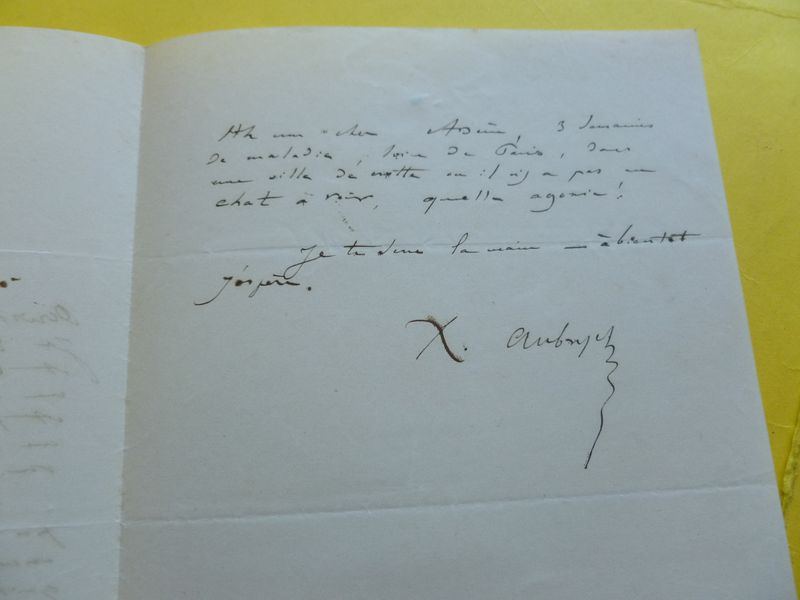 Ah mon cher Arsène, 3 semaines
de maladie, loin de Paris, dans
une ville de crotte où il n'y a pas un
chat à voir, quelle agonie!
Je te serre la main — à bientôt
j'espère.
X. Aubryet